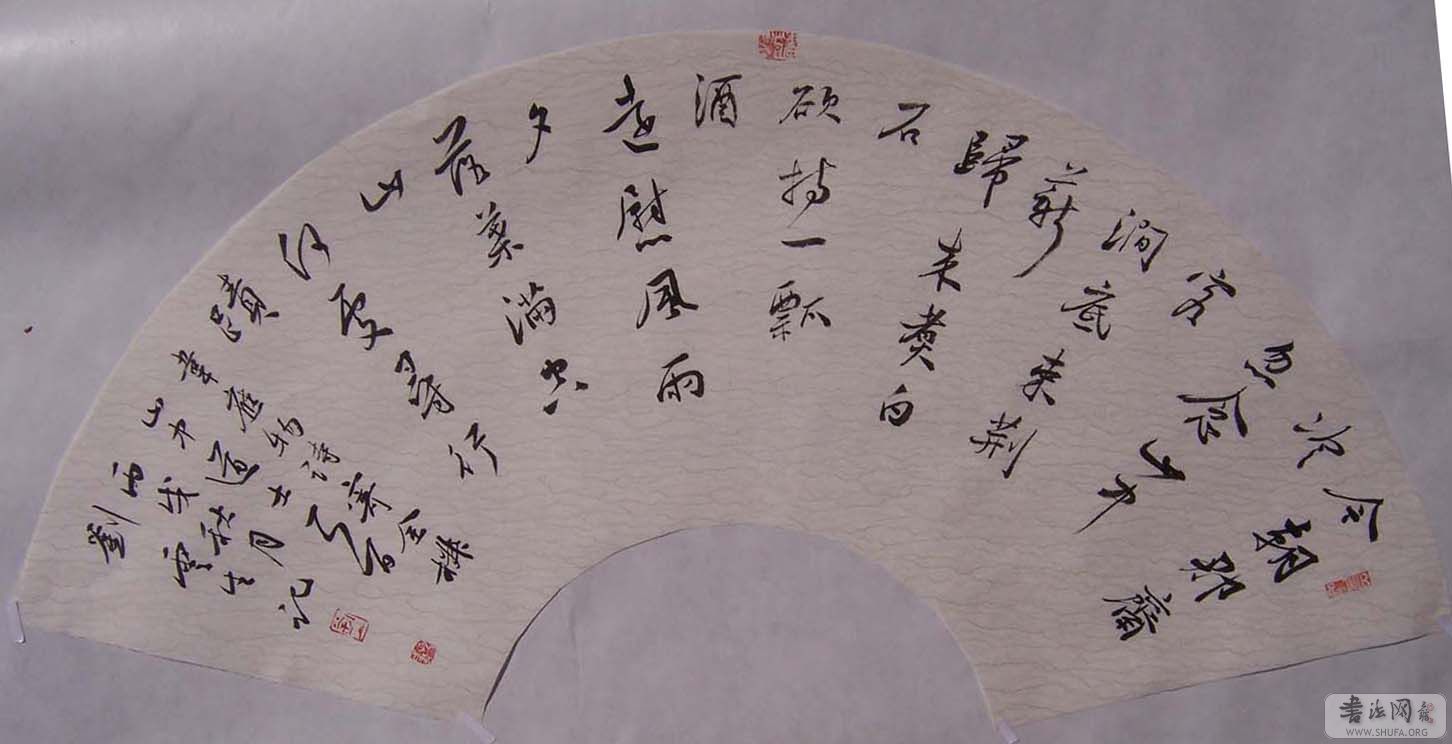 今朝郡齋
冷
忽念山中
客
澗底束荆
薪
歸来煮白
石
欲持一瓢
酒
遠慰風雨
夕
落葉滿空
山
何處尋行
蹟
韋應物詩寄全椒
山中道士
丙戌秋月
劉雲生記
书法网
WWW.SHUFA.ORG